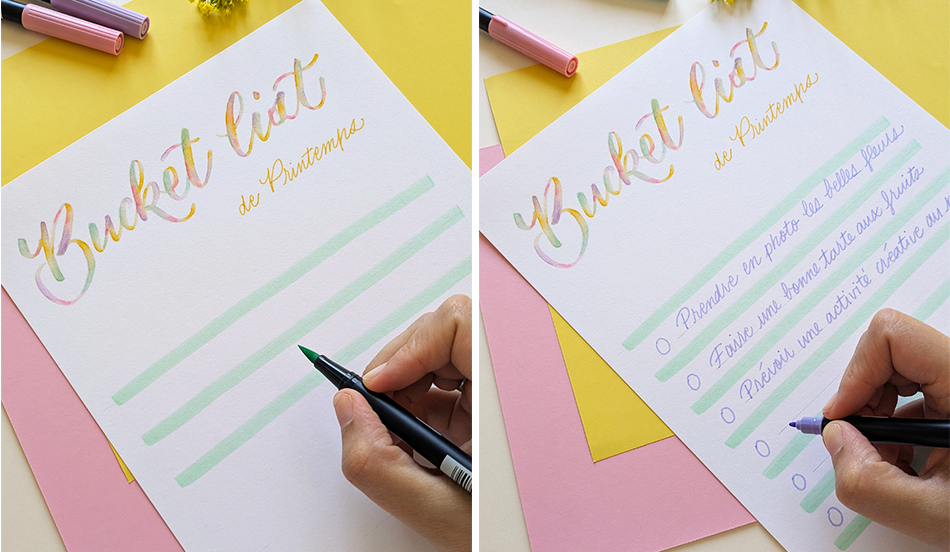 Bucket list
de Printemps
Bucket list
de Printemps
Prendre en photo les belles fleurs
Faire une bonne tarte aux fruits
Prévoir une activité créative au